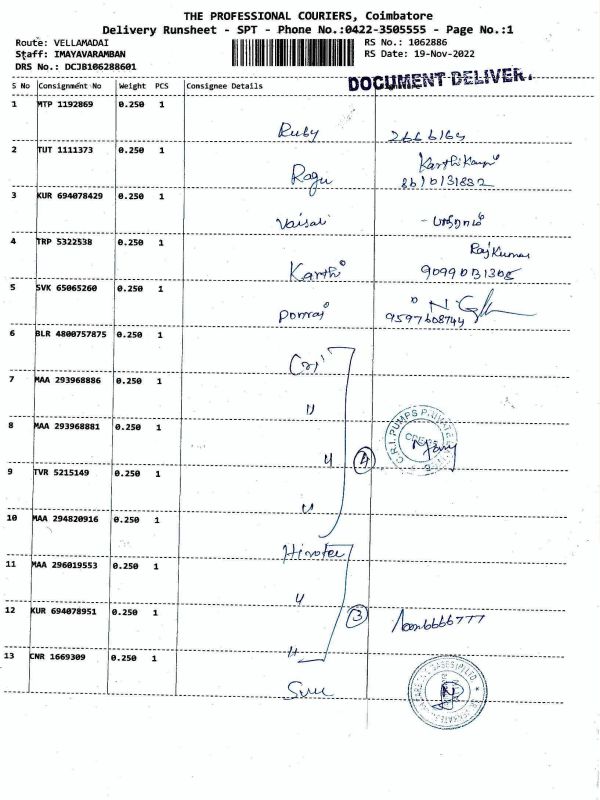 THE PROFESSIONAL COURIERS, Coimbatore
Delivery Runsheet - SPT - Phone No.:0422-3505555 - Page No.:1
Route: VELLAMADAI RS No.: 1062886
Staff: IMAYAVARAMBAN RS Date: 19-Nov-2022
DRS No.: DCJB106288601
DOCUMENT DELIVER.
S No Consignment No Weight PCS Consignee Details
1 MTP 1192869 0.250 1
Ruby
2 TUT 1111373 0.250 1
Ragu 8610131832
3 KUR 694078429 0.250 1
Vaisali
4 TRP 5322538 0.250 1
Rajkumar
Karthi 9099013130
5 SVK 65065260 0.250 1
Ponraj 9597608744
6 BLR 4800757875 0.250 1
Cri
7 MAA 293968886 0.250 1
"
8 MAA 293968881 0.250 1
C.R.I. PUMPS PRIVATE
" 4
9 TVR 5215149 0.250 1
"
10 MAA 294820916 0.250 1
11 MAA 296019553 0.250 1
"
12 KUR 694078951 0.250 1
3
"
13 CNR 1669309 0.250 1